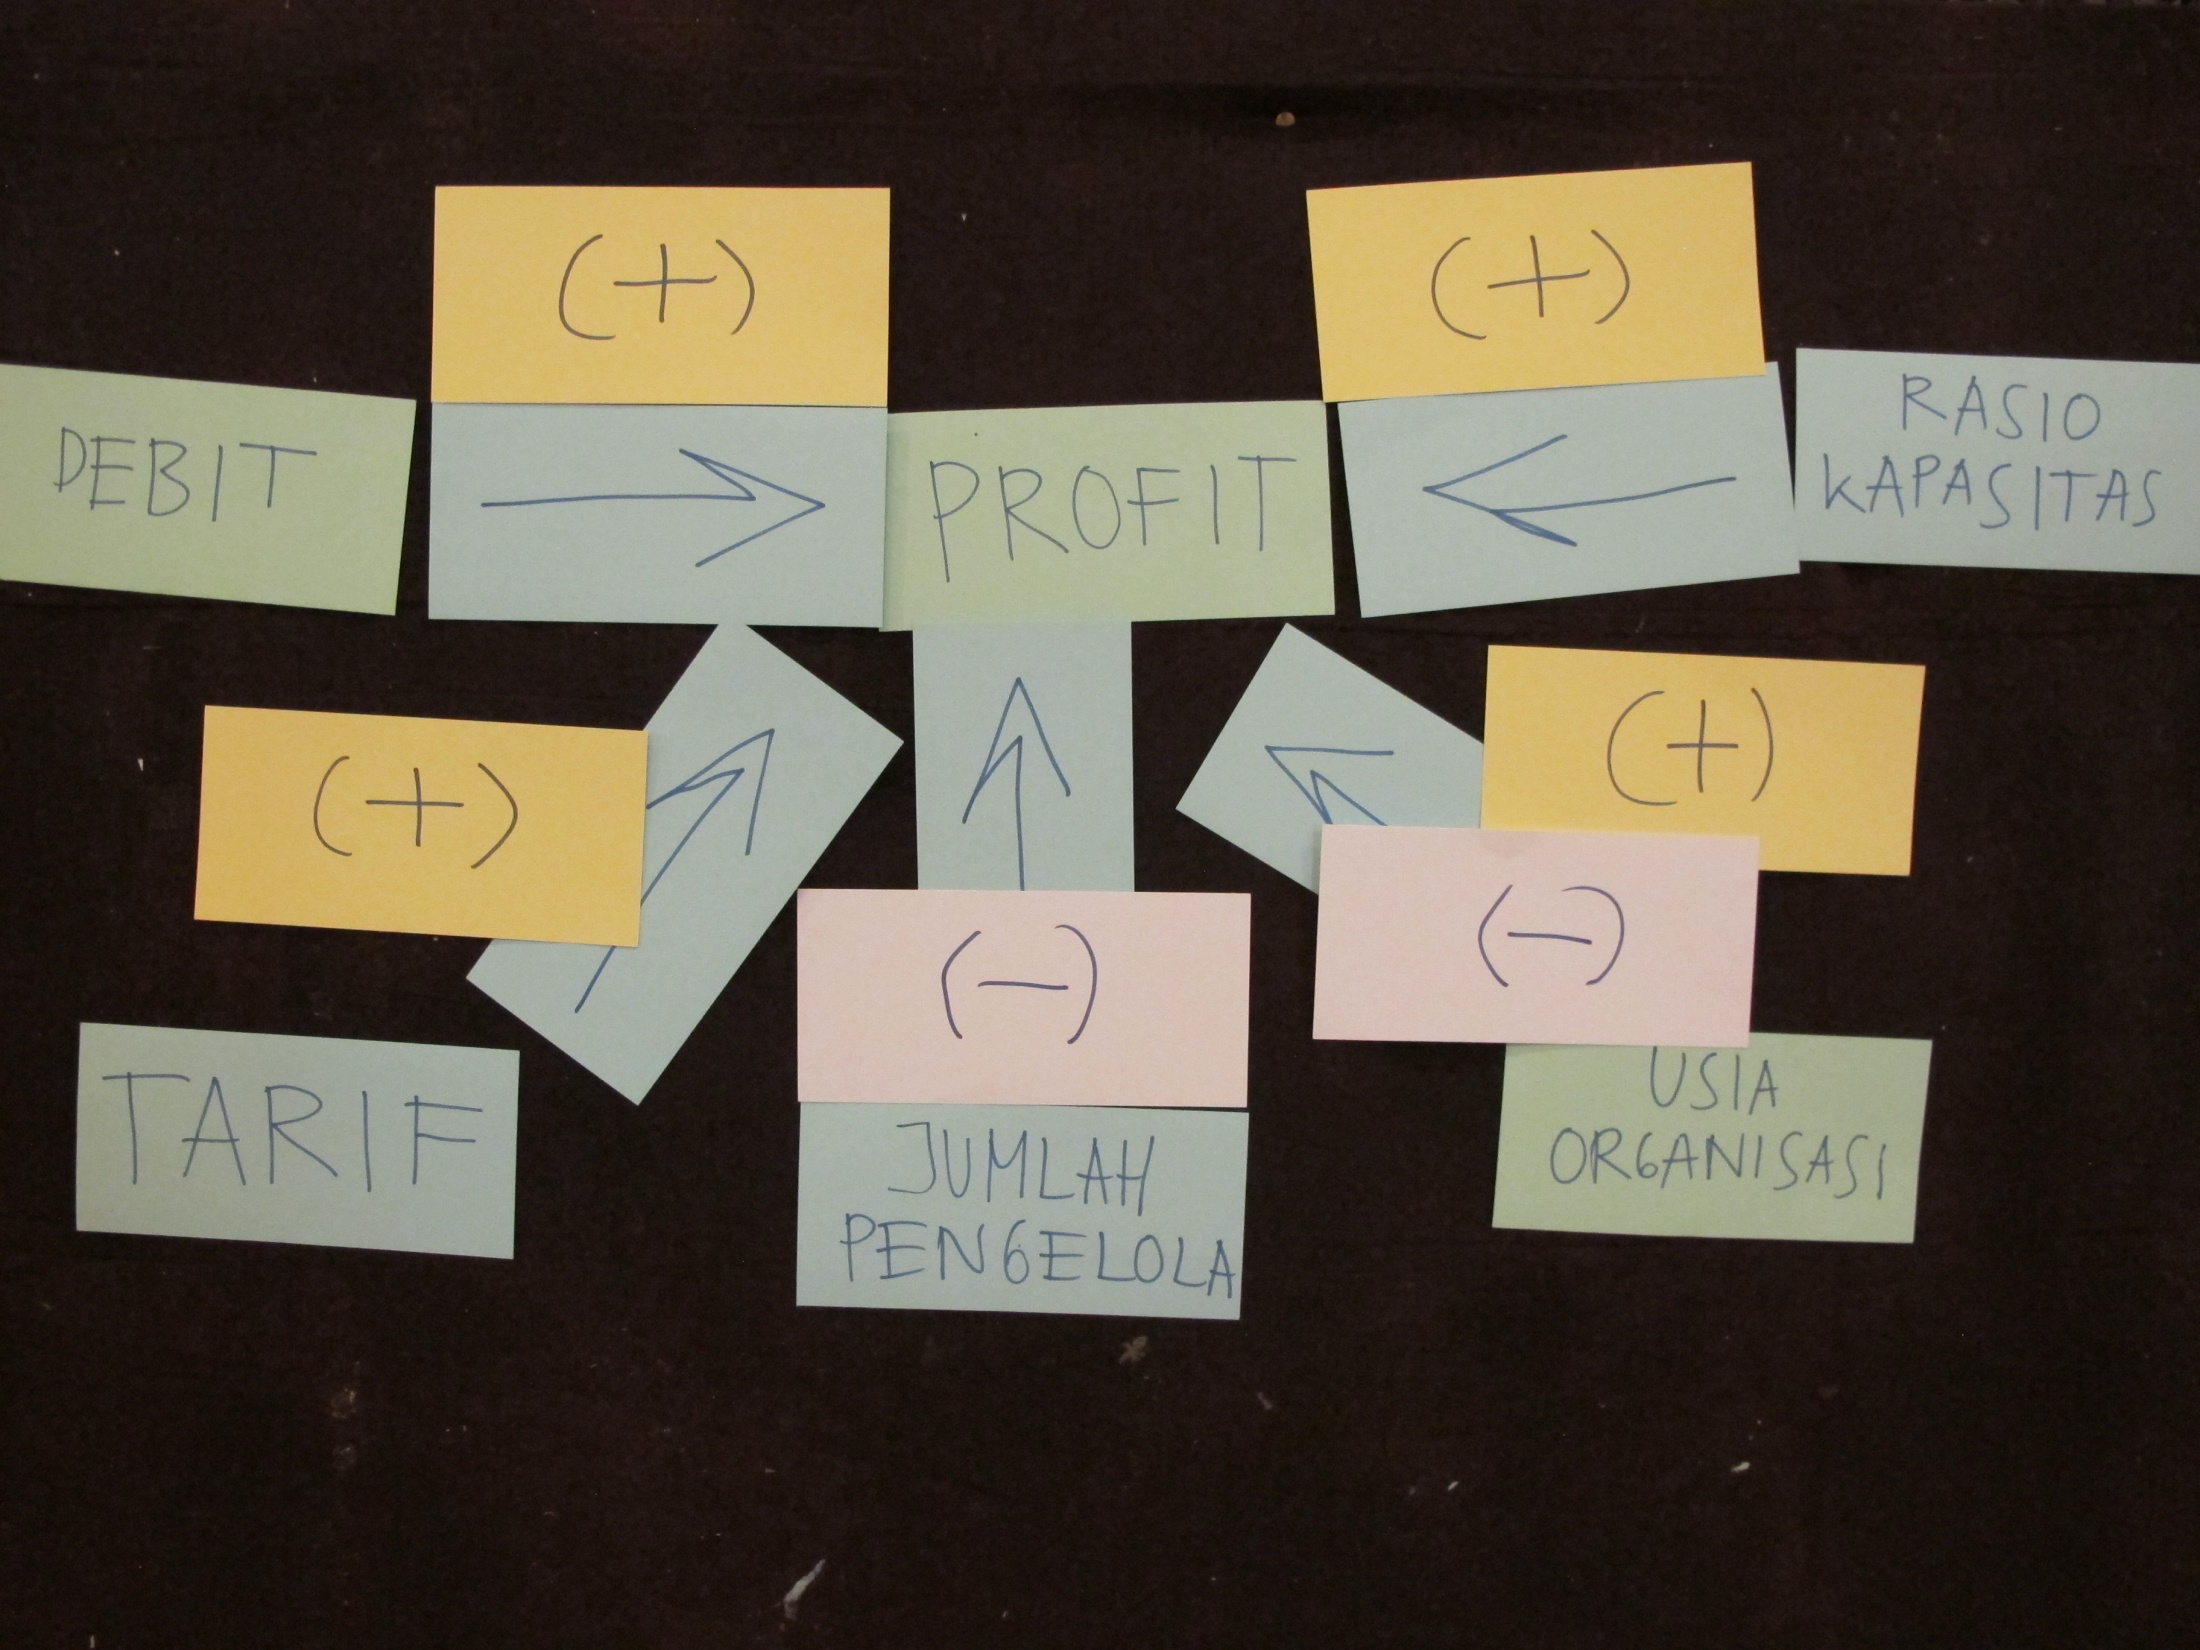 (+)
(+)
DEBIT
PROFIT
RASIO
KAPASITAS
(+)
(+)
(-)
(-)
TARIF
JUMLAH
PENGELOLA
USIA
ORGANISASI